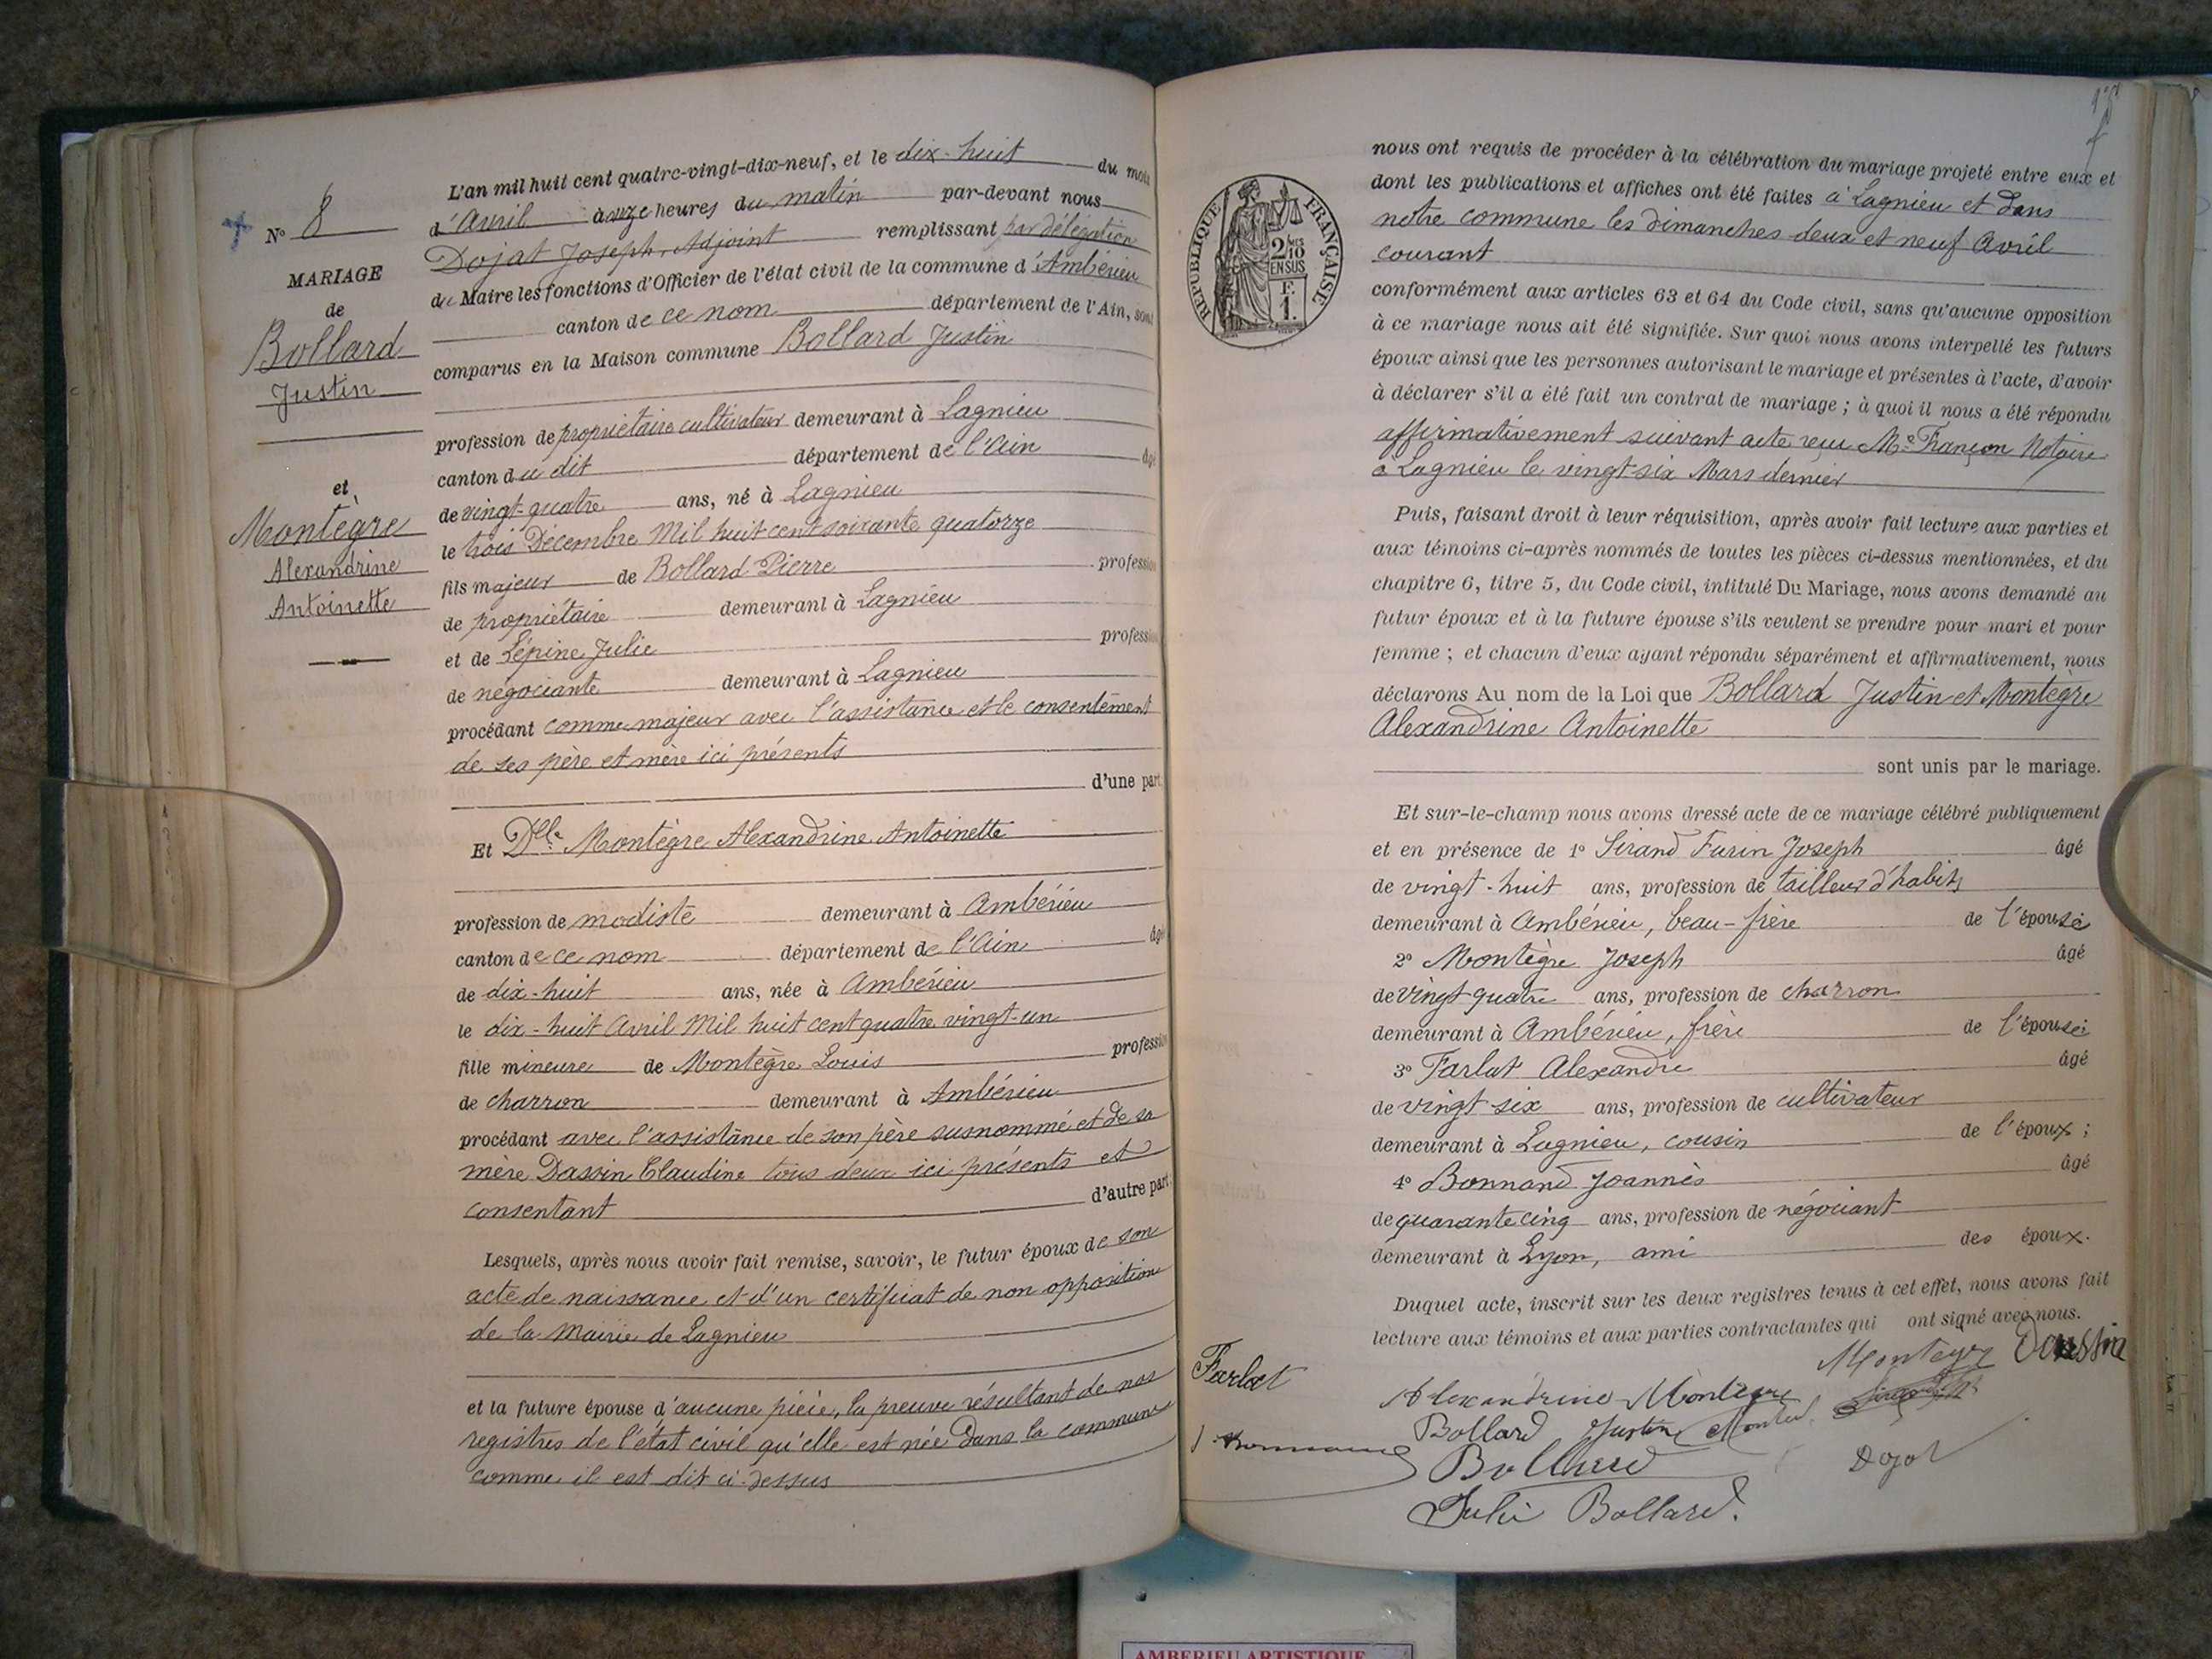 N° 8
MARIAGE
de
Bollard
Justin
et
Montègre
Alexandrine
Antoinette
L'an mil huit cent quatre-vingt-dix-neuf, et le dix-huit du mois
d'Avril à onze heures du matin par-devant nous
Dojat Joseph, Adjoint remplissant par délégation
du Maire les fonctions d'Officier de l'état civil de la commune d'Ambérieu
canton de ce nom département de l'Ain, sont
comparus en la Maison commune Bollard Justin
profession de propriétaire cultivateur demeurant à Lagnieu
canton du dit département de l'Ain âgé
de vingt-quatre ans, né à Lagnieu
le trois Décembre Mil huit cent soixante quatorze
fils majeur de Bollard Pierre profession
de propriétaire demeurant à Lagnieu
et de Lépine Julie profession
de négociante demeurant à Lagnieu
procédant comme majeur avec l'assistance et le consentement
de ses père et mère ici présents
d'une part
Et Dlle Montègre Alexandrine Antoinette
profession de modiste demeurant à Ambérieu
canton de ce nom département de l'Ain âgé
de dix-huit ans, née à Ambérieu
le dix-huit Avril Mil huit cent quatre vingt-un
fille mineure de Montègre Louis profession
de charron demeurant à Ambérieu
procédant avec l'assistance de son père susnommé et de sa
mère Dassin Claudine tous deux ici présents et
consentant d'autre part
Lesquels, après nous avoir fait remise, savoir, le futur époux de son
acte de naissance et d'un certificat de non opposition
de la Mairie de Lagnieu
et la future épouse d'aucune pièce, la preuve résultant de nos
registres de l'état civil qu'elle est née dans la commune
comme il est dit ci-dessus
RÉPUBLIQUE FRANÇAISE
2/10 EN SUS
F. 1.
nous ont requis de procéder à la célébration du mariage projeté entre eux et
dont les publications et affiches ont été faites à Lagnieu et dans
notre commune les dimanches deux et neuf Avril
courant
conformément aux articles 63 et 64 du Code civil, sans qu'aucune opposition
à ce mariage nous ait été signifiée. Sur quoi nous avons interpellé les futurs
époux ainsi que les personnes autorisant le mariage et présentes à l'acte, d'avoir
à déclarer s'il a été fait un contrat de mariage ; à quoi il nous a été répondu
affirmativement suivant acte reçu Me Françon Notaire
à Lagnieu le vingt-six Mars dernier
Puis, faisant droit à leur réquisition, après avoir fait lecture aux parties et
aux témoins ci-après nommés de toutes les pièces ci-dessus mentionnées, et du
chapitre 6, titre 5, du Code civil, intitulé Du Mariage, nous avons demandé au
futur époux et à la future épouse s'ils veulent se prendre pour mari et pour
femme ; et chacun d'eux ayant répondu séparément et affirmativement, nous
déclarons Au nom de la Loi que Bollard Justin et Montègre
Alexandrine Antoinette
sont unis par le mariage.
Et sur-le-champ nous avons dressé acte de ce mariage célébré publiquement
et en présence de 1° Sirand Furin Joseph âgé
de vingt-huit ans, profession de tailleur d'habits
demeurant à Ambérieu, beau-frère de l'épouse
2° Montègre Joseph âgé
de vingt quatre ans, profession de charron
demeurant à Ambérieu, frère de l'épouse
3° Farlat Alexandre âgé
de vingt-six ans, profession de cultivateur
demeurant à Lagnieu, cousin de l'époux ;
4° Bonnand Joannès âgé
de quarante cinq ans, profession de négociant
demeurant à Lyon, ami des époux.
Duquel acte, inscrit sur les deux registres tenus à cet effet, nous avons fait
lecture aux témoins et aux parties contractantes qui ont signé avec nous.
Montegre Daussin
Farlat Alexandrine Montègre
Bollard Justin
Bollard Dojat
Julie Bollard.
AMBERIEU ARTISTIQUE